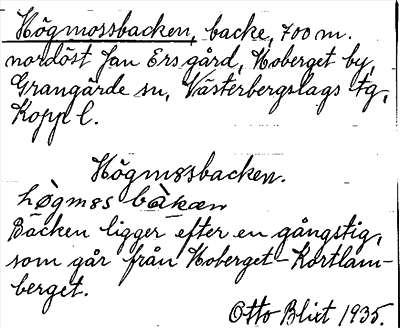 Högmossbacken, backe, 700 m.
nordöst Jan Ers gård, Hoberget by,
Grangärde sn, Västerbergslags tg,
Kopp l.
Högmossbacken.
hø̀gmɷs bàkæn
Backen ligger efter en gångstig,
som går från Hoberget - Kortlam-
berget.
Otto Blixt 1935.